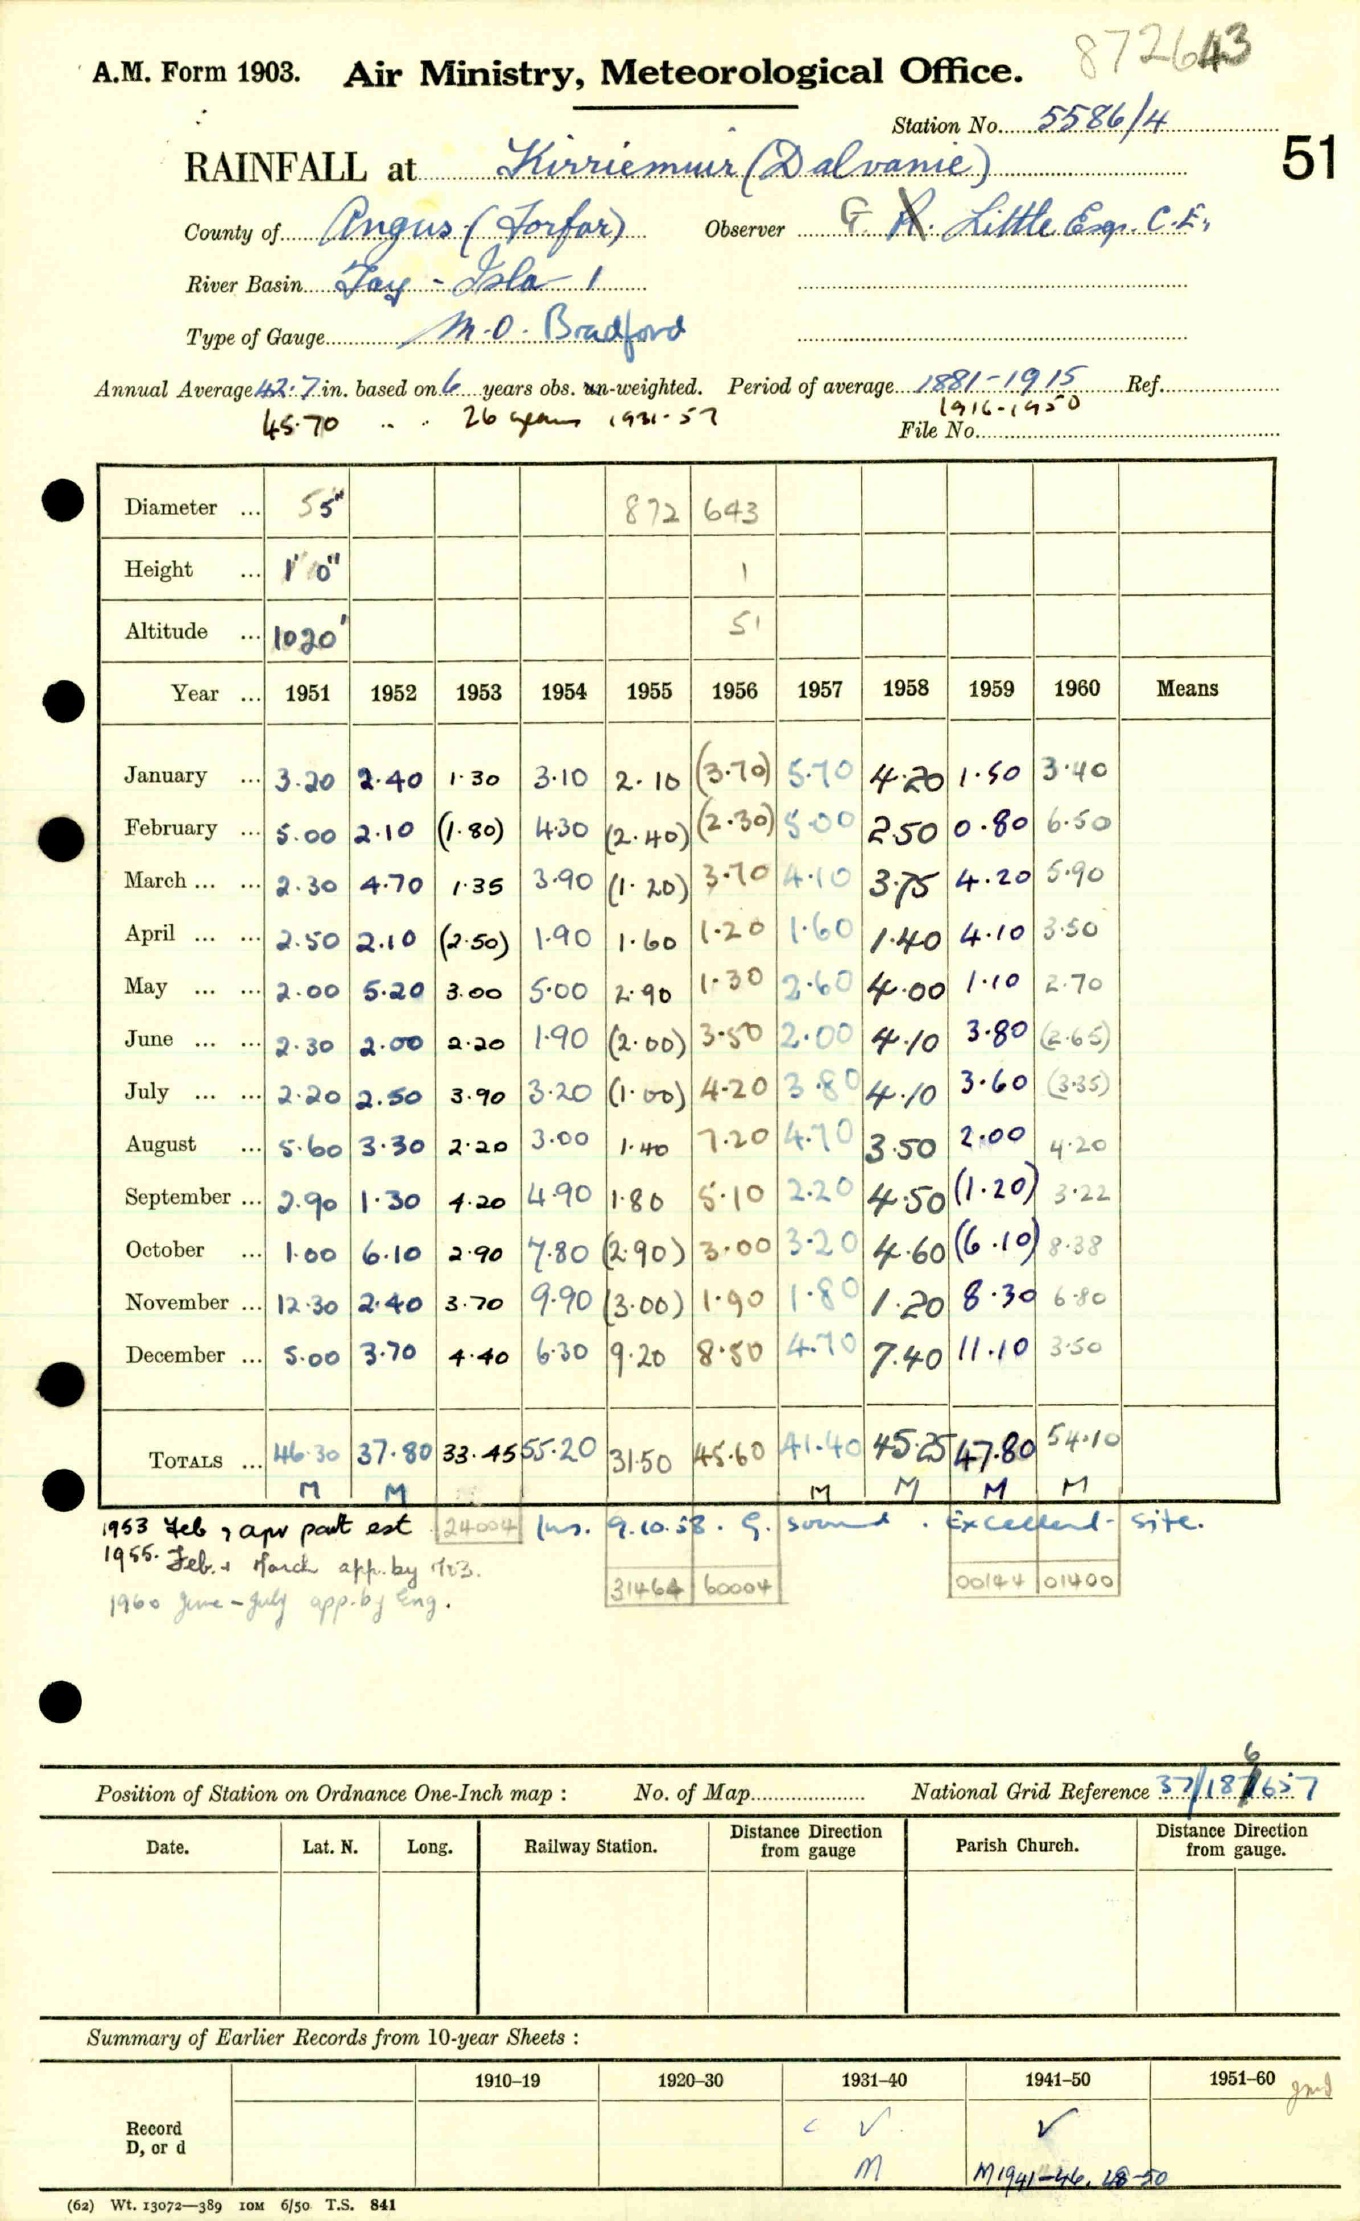 872643
A.M. Form 1903. Air Ministry, Meteorological Office.
Station No. 5586/4
51
RAINFALL at Kirriemuir (Dalvanie)
County of Angus (Forfar) Observer G. R. Little Esq. C.E.
River Basin Tay - Isla 1
Type of Gauge M.O. Bradford
Annual Average 42.7 in. based on 6 years obs. un-weighted. Period of average 1881-1915 Ref.
45.70 .. .. 26 years 1931-57 1916-1950
File No.
Diameter ... 5" 872 643
Height ... 1' 0" 1
Altitude ... 1020' 51
Year ... 1951 1952 1953 1954 1955 1956 1957 1958 1959 1960 Means
January ... 3.20 2.40 1.30 3.10 2.10 (3.70) 5.70 4.20 1.50 3.40
February ... 5.00 2.10 (1.80) 4.30 (2.40) (2.30) 5.00 2.50 0.80 6.50
March ... ... 2.30 4.70 1.35 3.90 (1.20) 3.70 4.10 3.75 4.20 5.90
April ... ... 2.50 2.10 (2.50) 1.90 1.60 1.20 1.60 1.40 4.10 3.50
May ... ... 2.00 5.20 3.00 5.00 2.90 1.30 2.60 4.00 1.10 2.70
June ... ... 2.30 2.00 2.20 1.90 (2.00) 3.50 2.00 4.10 3.80 (2.65)
July ... ... 2.20 2.50 3.90 3.20 (1.00) 4.20 3.80 4.10 3.60 (3.35)
August ... 5.60 3.30 2.20 3.00 1.40 7.20 4.70 3.50 2.00 4.20
September ... 2.90 1.30 4.20 4.90 1.80 5.10 2.20 4.50 (1.20) 3.22
October ... 1.00 6.10 2.90 7.80 (2.90) 3.00 3.20 4.60 (6.10) 8.38
November ... 12.30 2.40 3.70 9.90 (3.00) 1.90 1.80 1.20 8.30 6.80
December ... 5.00 3.70 4.40 6.30 9.20 8.50 4.70 7.40 11.10 3.50
TOTALS ... 46.30 37.80 33.45 55.20 31.50 45.60 41.40 45.25 47.80 54.10
M M M M M M
1953 Feb, apr part est 24004 Ins. 9.10.58. G. sound. Excellent site.
1955. Feb. + March app. by
31464 60004 00144 01400
1960 June - July app. by Eng.
6
Position of Station on Ordnance One-Inch map : No. of Map National Grid Reference 37/187657
Date. Lat. N. Long. Railway Station. Distance Direction from gauge Parish Church. Distance Direction from gauge.
Summary of Earlier Records from 10-year Sheets :
1910–19 1920–30 1931–40 1941–50 1951–60
Record ✓ ✓
D, or d
M M 1941-46. 48-50
(62) Wt. 13072—389 10M 6/50 T.S. 841